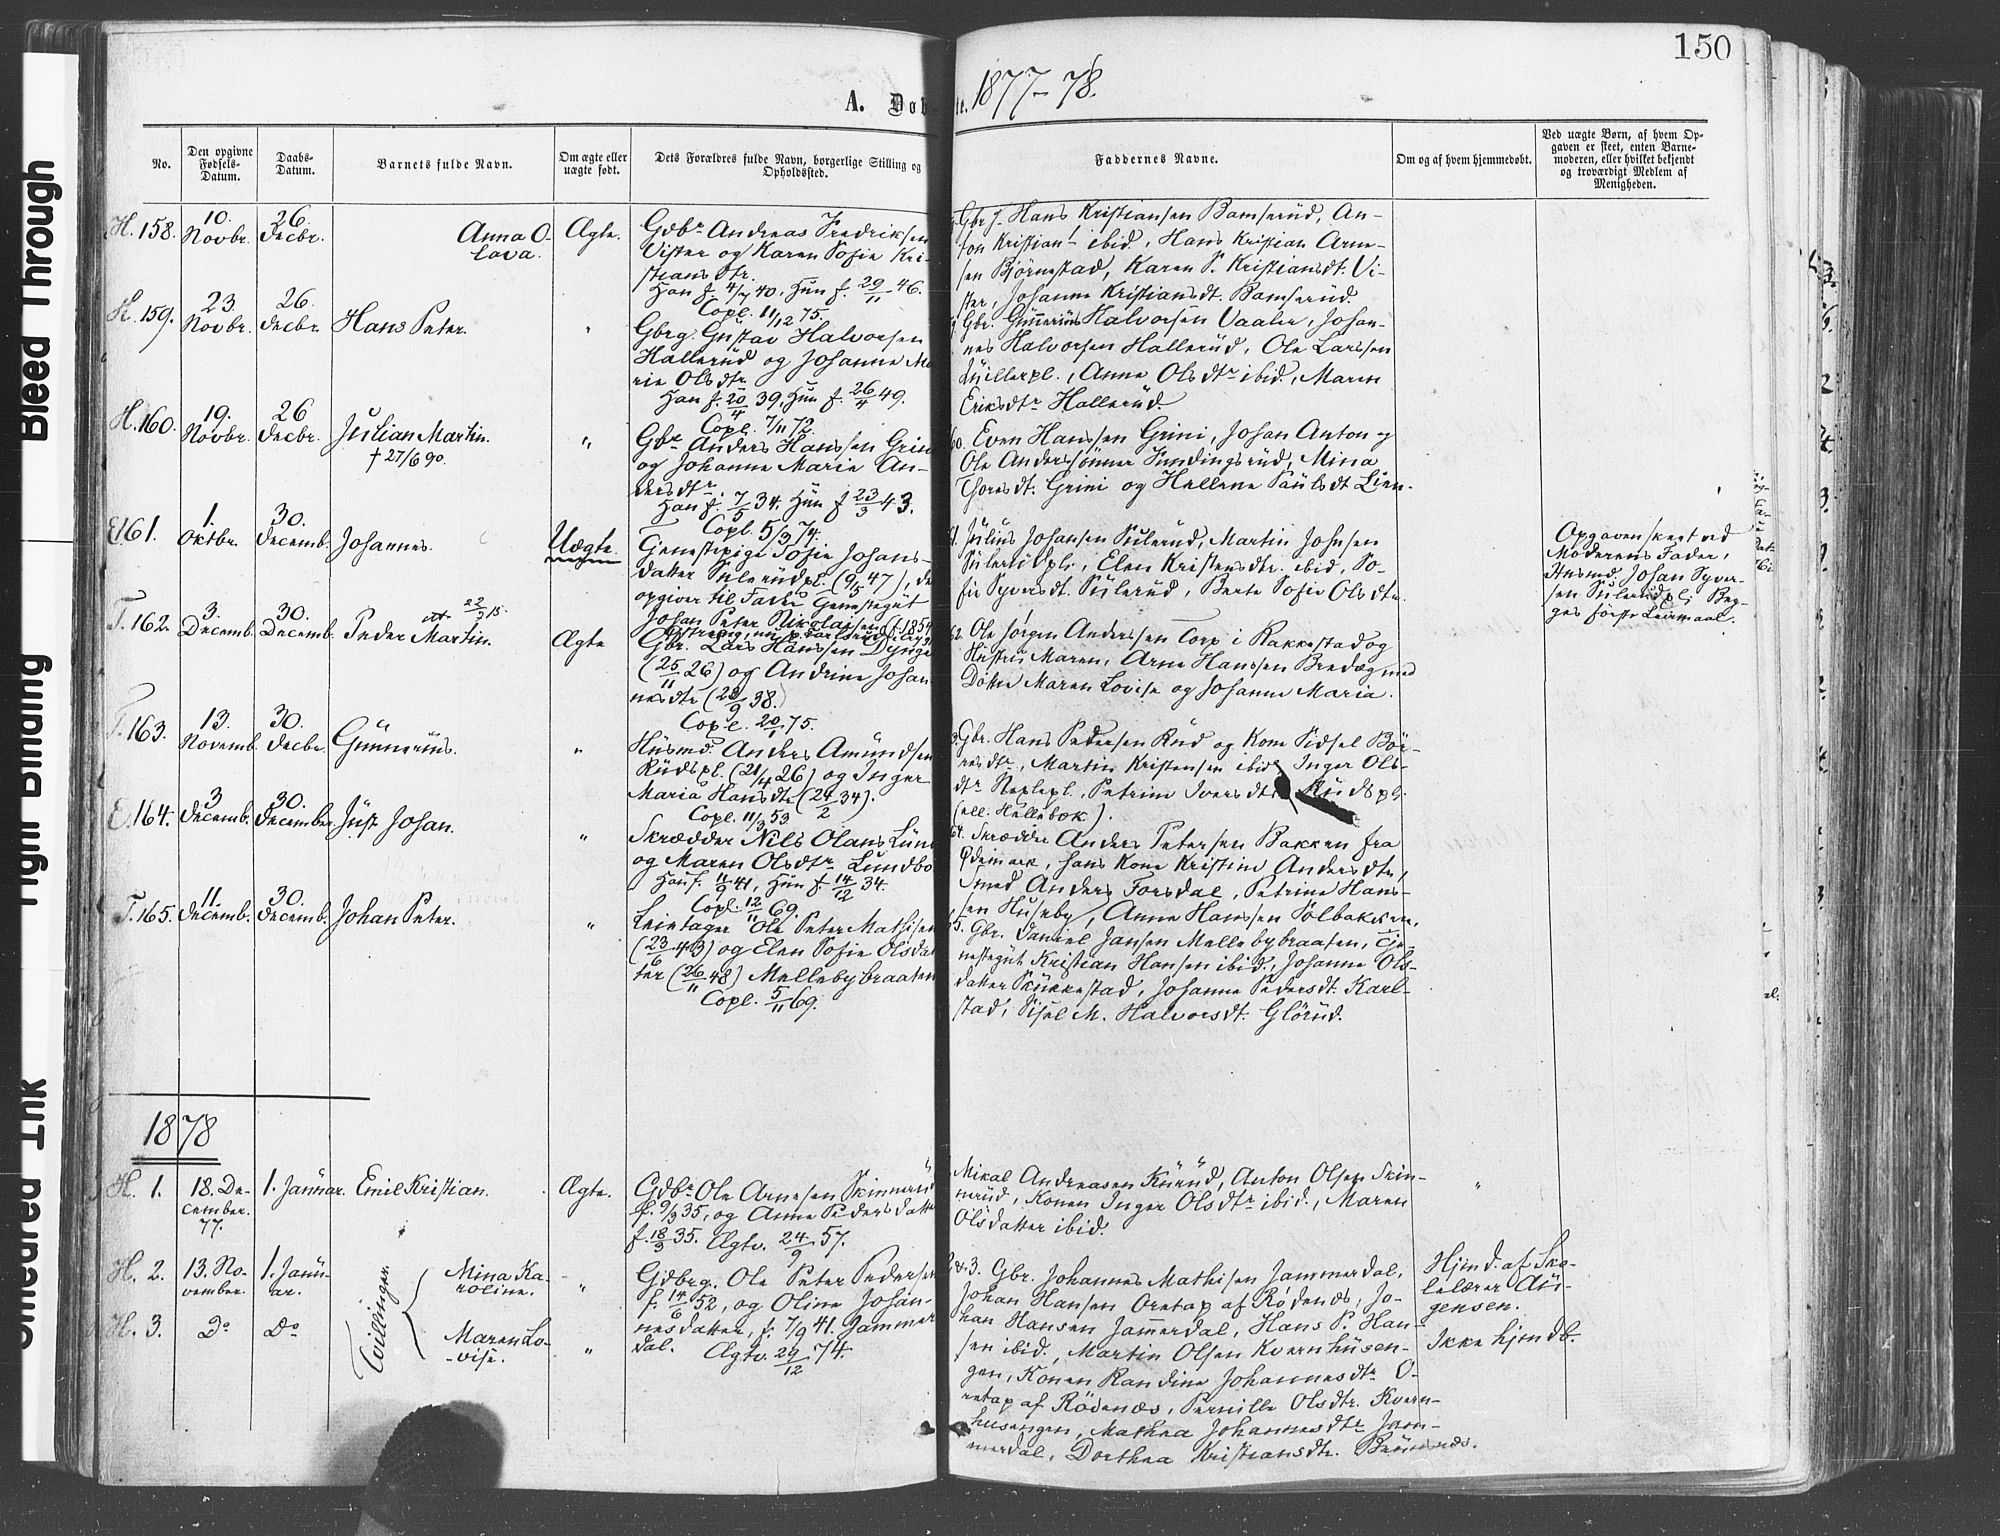 150
1877-78.
A. Døb
te.
No.
Den opgivne Fødsels-Datum.
Daabs-Datum.
Barnets fulde Navn.
Om ægte eller uægte født.
Dets Forældres fulde Navn, borgerlige Stilling og Opholdssted.
Faddernes Navne.
Om og af hvem hjemmedøbt.
Ved uægte Børn, af hvem Op-
gaven er skeet, enten Barne-
moderen, eller hvilket bekjendt
og troværdigt Medlem af
Menigheden.
H. 158. 10. Novbr. 26. Decbr. Anna O-
lava. Ægte.
Gdbr Andreas Fredriksen
Vister og Karen Sofie Kri-
stiansdtr.
Han f. 4/7 40, Hun f. 29/11 46.
Copl. 11/12 75.
Gbr J. Hans Kristiansen Bamserud, An-
ton Kristians. ibid, Hans Kristian Arne-
sen Björnestad, Karen S. Kristiansdt. Vi-
ster, Johanne Kristiansdt. Bamserud.
H. 159. 23. Novbr. 26. Decbr. Hans Peter. "
Gbrg. Gustav Halvorsen
Hallerud og Johanne Ma
rie Olsdtr
Han f. 20/4 39, Hun f. 26/4 49.
Copl. 7/11 72.
Gbr. Gunerius Halvorsen Vaaler, Johan-
nes Halvorsen Hallerud, Ole Larssen
pl., Anne Olsdtr ibid., Maren
Eriksdtr Hallerud.
H. 160. 19. Novbr. 26 Decbr. Julian Martin. "
† 27/6 90.
Gbr Anders Hanssen Grin
og Johanne Marie An-
dersdtr.
Han f. 7/5 34, Hun f 23/3 43.
Copl. 5/3 74.
60. Even Hanssen Grini, Johan Anton og
Ole Anderssönner Sundingsrud, Mina
Thoresdt. Grini og Hellene Paulsdt Lien.
E. 161. 1. Oktbr. 30. Decemb. Johannes. Uægte.
Tjenestepige Sofie Johans-
datter Sulerudpl. (9/5 47), de
opgiver til Fader Tjenestegut
Johan Peter Nikolaisen (f. 1854
Julius Johansen Sulerud, Martin Johnsen
Sulerudpl., Elen Kristensdtr. ibid, So-
fie Syversdt. Sulerud, Berte Sofie Olsdtr.
Opgaven skeet ved
Moderens Fader,
Husmd. Johan Syver-
sen Sulerudpl. Beg-
ges förste Leiermaal.
T. 162. 3. Decemb. 30. Decemb. Peder Martin. Ægte
Gbr. Lars Hanssen Dynge
(25/11 26) og Andrine Johan
nesdtr (29/9 38.)
Copl. 20/1 75.
62. Ole Jörgen Anderssen Torp i Rakkestad og
Hustru Maren, Arne Hanssen Bredeg med
Dötre Maren Lovise og Johanne Maria.
T. 163. 13. Novemb. 30. Decbr. Gunerius. "
Husmd. Anders Amundsen
Rudspl. (21/4 26) og Inger
Maria Hansdtr (24/2 34).
Copl. 11/3 53
3. Gbr. Hans Pedersen Rud og Kone Sidsel Bör-
resdtr, Martin Kristensen ibid, Inger Ols-
dtr Neslepl., Petrine Iversdtr Rudspl.
(ell. Hellebæk).
E. 164. 3 Decemb. 30. December. Just Johan. "
Skrædder Nils Olaus Lun
og Maren Olsdtr Lundbo
Han f. 11/9 41, Hun f. 14/12 34.
Copl. 12/11 69.
64. Skrædder Anders Petersen Bakken fra
Ödemark, hans Kone Kristine Andersdtr,
Smed Anders Forsdal, Petrine Hans-
sen Huseby, Anne Hanssen Solbakken.
T. 165. 11. Decemb. 30. Decemb. Johan Peter. "
Leietager Ole Peter Mathisen
(23/6 43) og Elen Sofie Olsdat
ter (26/11 48) Mellebybraaten
Copl. 5/11 69.
65. Gbr. Daniel Jansen Mellebybraaten, Tje-
nestegut Kristian Hansen ibid., Johanne Ols-
datter Skukkestad, Johanne Pedersdt. Karl-
stad, Sisel M. Halvorsdt. Glörud.
1878
H. 1. 18. De-
cember.
77. 1. Januar. Emil Kristian. Ægte.
Gdbr Ole Arnesen Skinnerud
f. 9/3 35, og Anne Pedersdatte
f. 18/3 35. Ægtv. 24/9 57.
Mikal Andreasen Kürud, Anton Olsen Skin-
nerud, Konen Inger Olsdtr ibid., Maren
Olsdatter ibid. "
H. 2. 13. No-
vember. 1. Janu-
ar. Mina Ka-
roline. "
Tvillinger.
Gdbrg. Ole Peter Pedersen
f. 14/6 52, og Oline Johan-
nesdatter, f. 7/9 41. Jammer
dal. Ægtv. 29/12 74.
H. 3. Do Do Maren Lo-
-vise. "
2 & 3. Gbr. Johannes Mathisen Jammerdal,
Johan Hansen Oretap af Rödenæs, Jo-
han Hansen Jamerdal, Hans P. Han-
sen ibid., Martin Olsen Kvernhusen-
gen, Konen Randine Johannesdtr O-
retap af Rödenæs, Pernille Olsdtr. Kvern-
husengen, Mathea Johannesdtr Jam-
merdal, Dorthea Kristiansdtr.
Hjmd. af Sko-
lelærer Aü-
gensen.
Ikke hjmdb.
Bleed Through
Tight Binding
Smeared Ink